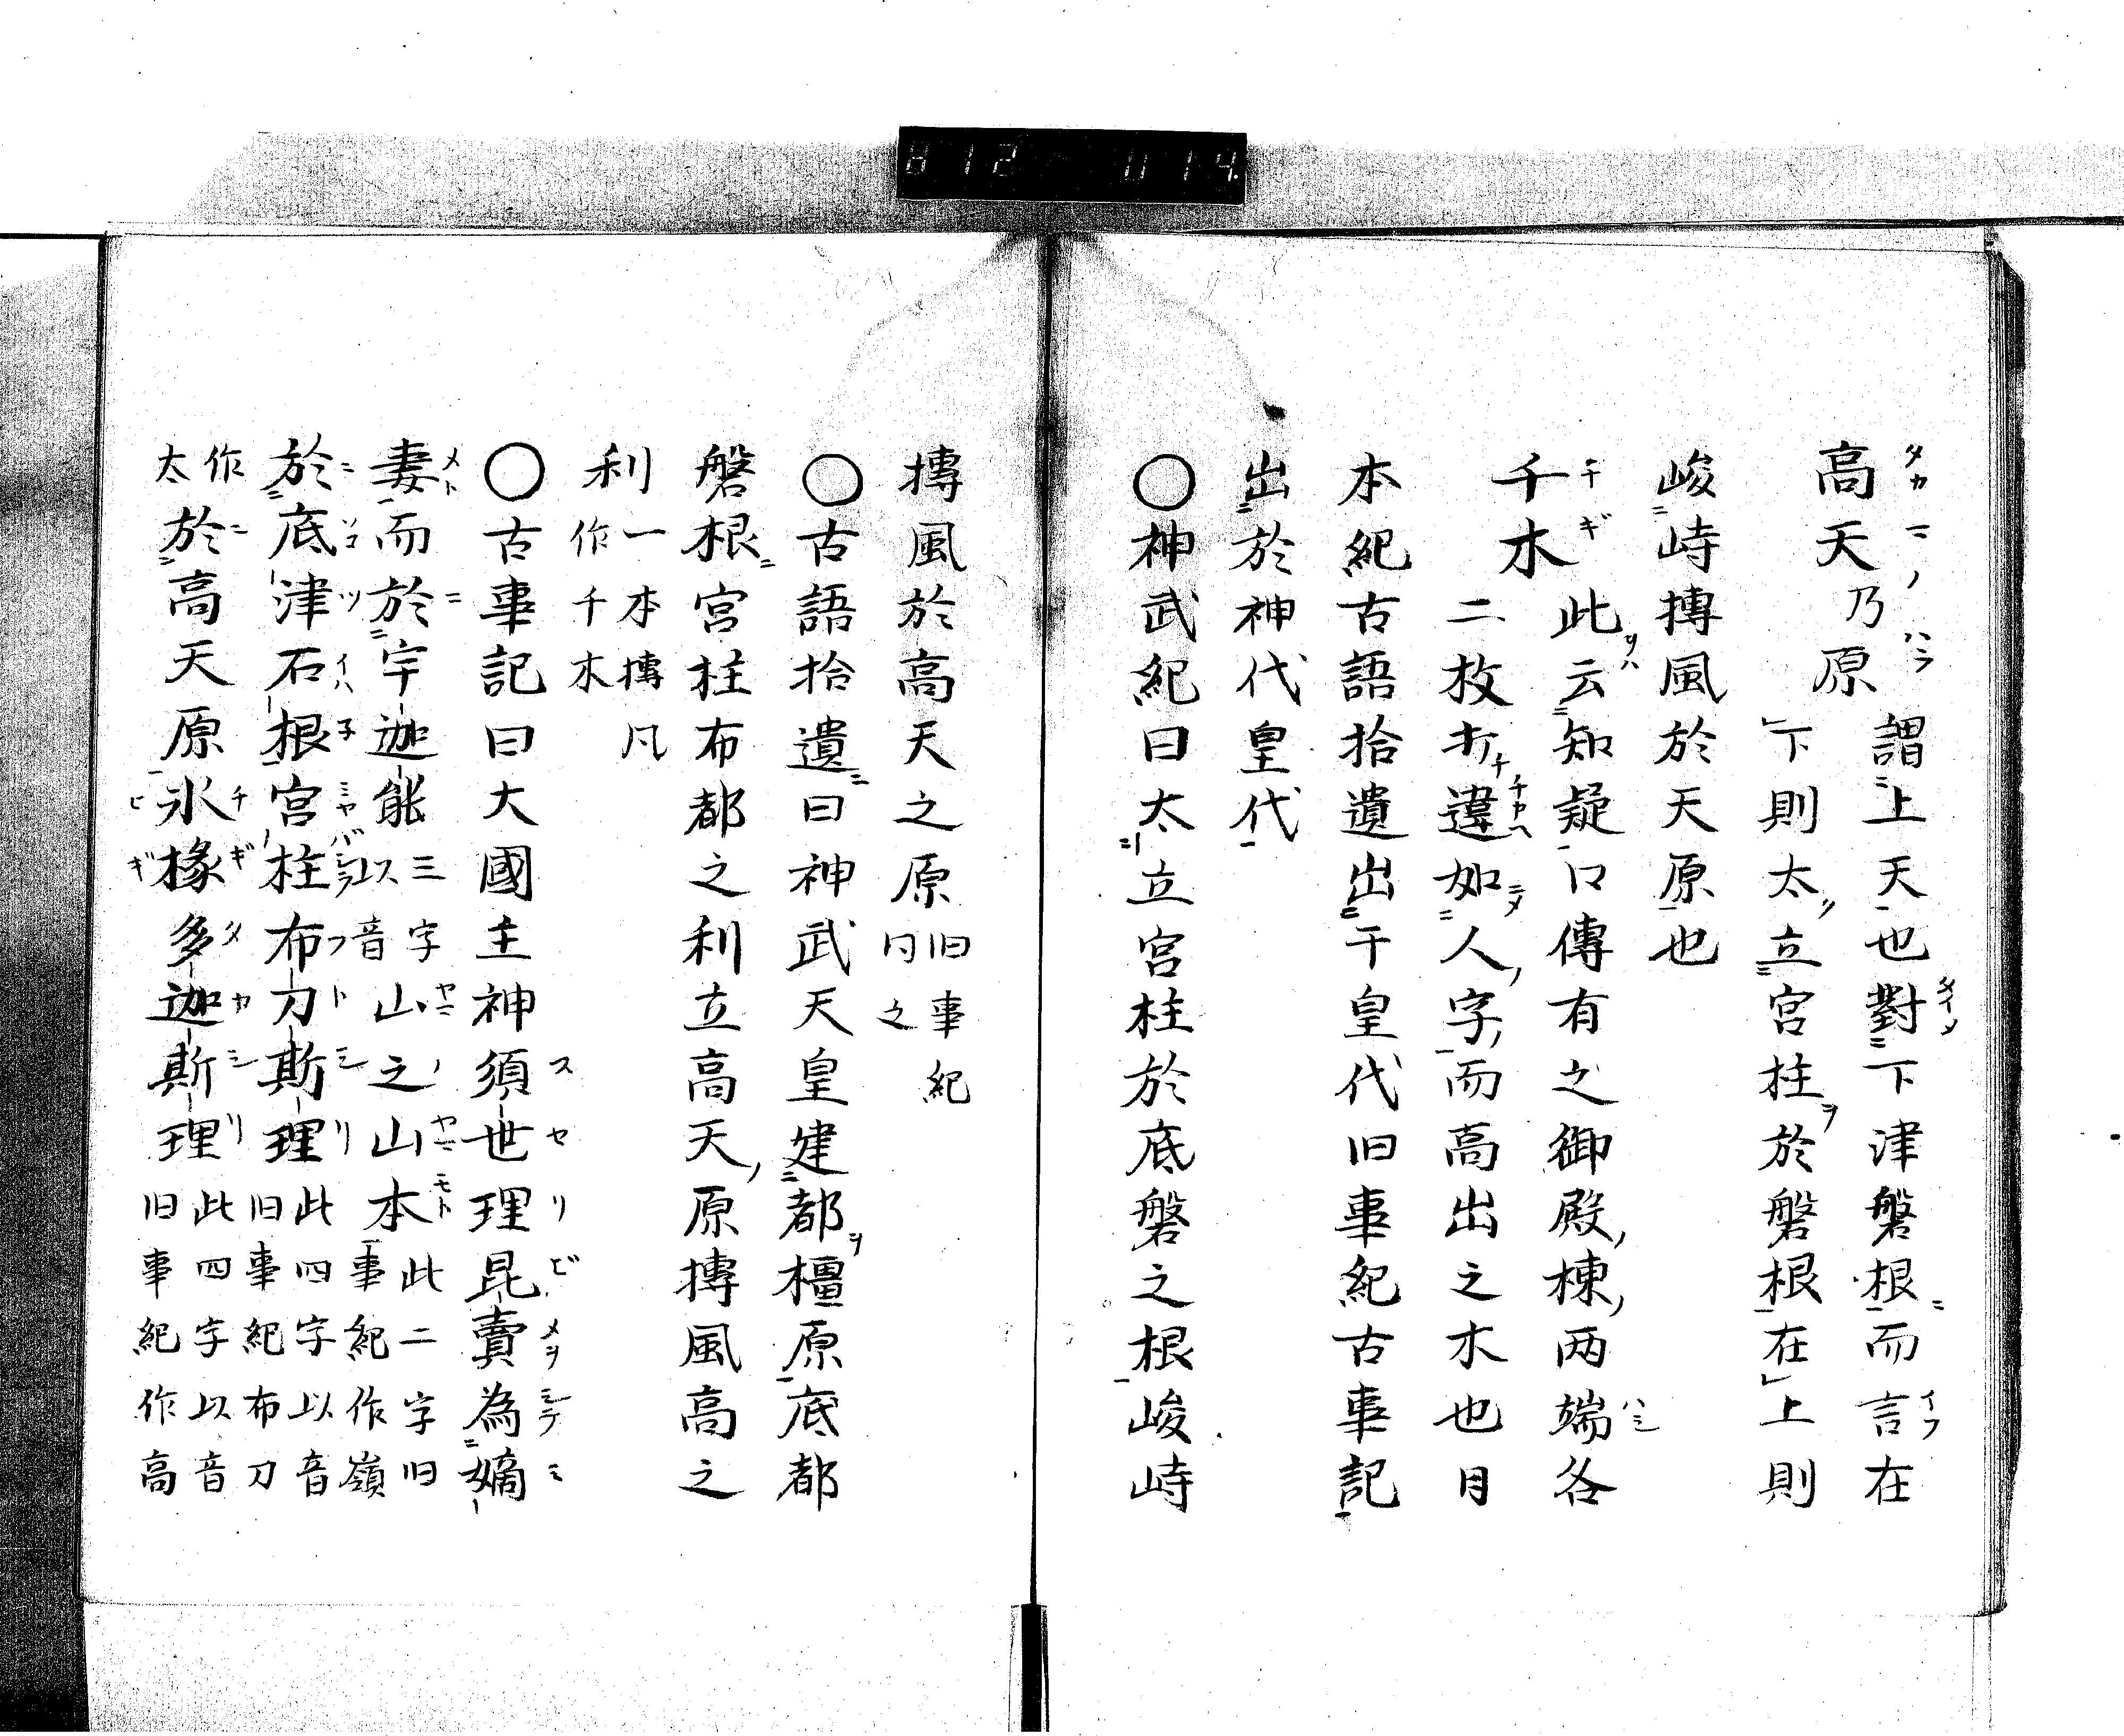 812 014
高天乃原謂上天也對下津磐根而言在
下則太立宮柱於磐根在上則
峻峙摶風於天原也
千木此云知疑口傳有之御殿棟両端各
二枚打違如人字而高出之木也日
本紀古語拾遺出于皇代旧事紀古事記
出於神代皇代
○神武紀曰太立宮柱於底磐之根峻峙
摶風於高天之原旧事紀同之
○古語拾遺曰神武天皇建都橿原底都
磐根宮柱布都之利立高天原摶風高之
利一本摶凡作千木
○古事記曰大國主神須世理毘賣為嫡
妻而於宇迦能三字以音山之山本此二字旧事紀作嶺
於底津石根宮柱布刀斯理此四字以音旧事紀布刀
作太於高天原氷椽多迦斯理此四字以音旧事紀作高